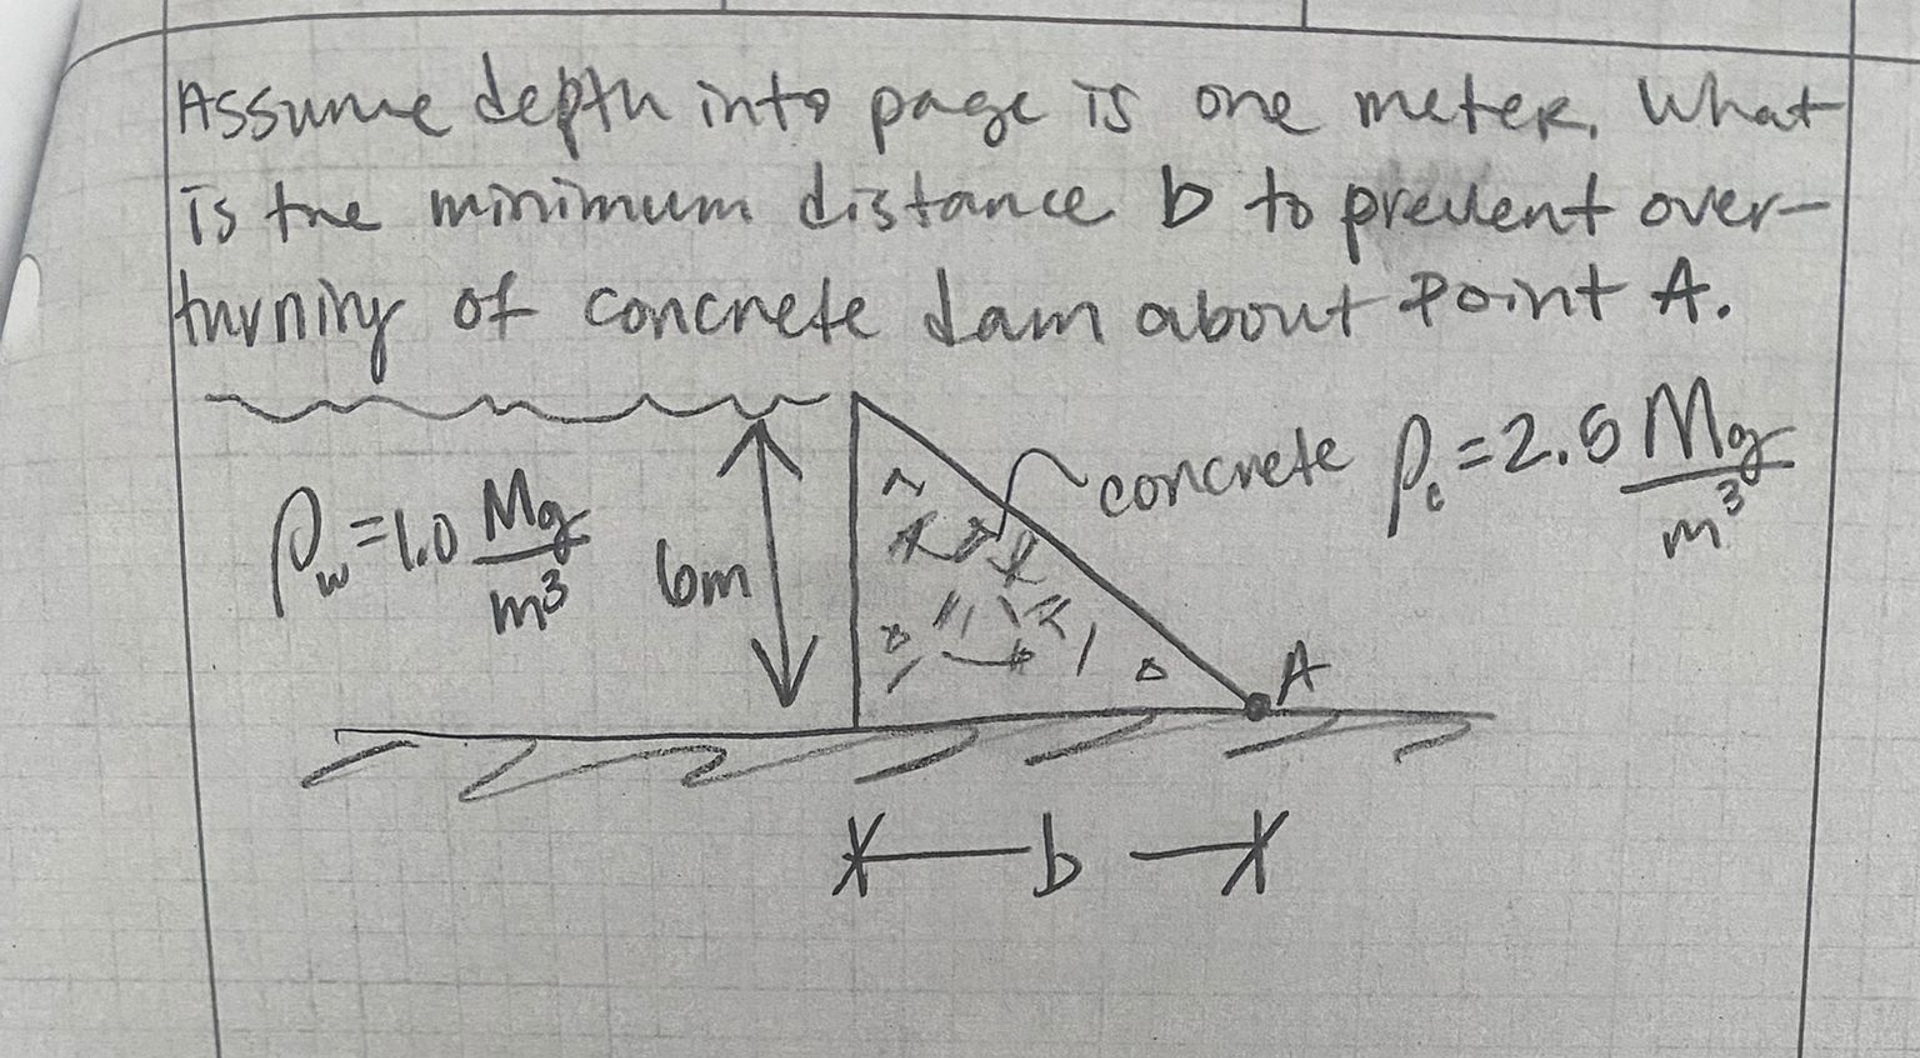 Assume depth into page is one meter. What
is the minimum distance b to prevent over-
turning of concrete dam about Point A.
concrete ρc = 2.5 Mg/m³
ρw = 1.0 Mg/m³
6m
A
b